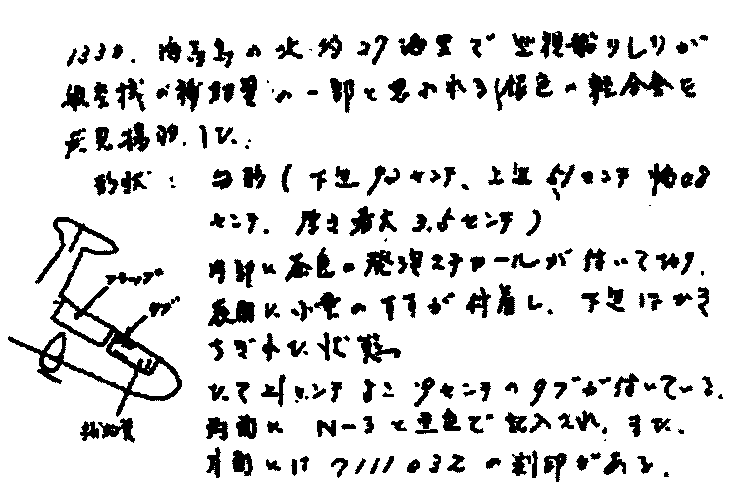 1330. 海馬島の北約27海里で巡視船りしりが
航空機の補助翼の一部と思われる銀色の軽合金を
発見揚収した.
形状: 台形(下辺90センチ、上辺51センチ 幅28
センチ. 厚さ最大3.5センチ)
内部に茶色の発泡スチロールが付いており.
表面に少量のすすが付着し. 下辺はかき
ちぎれた状態。
たて21センチ よこ9センチのタブが付いている.
両面に N-3と黒色で記入され. また.
片面には 7111032 の刻印がある.
フラップ
タブ
補助翼